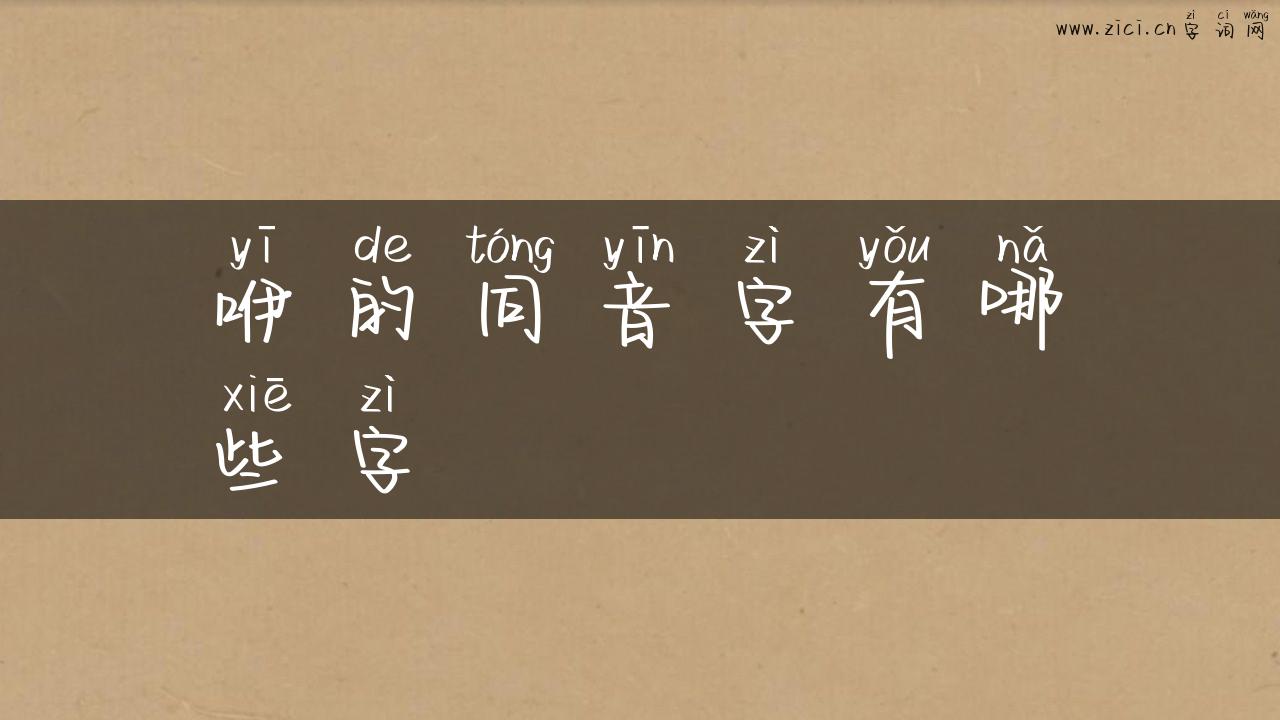 zì cí wǎng
www.zici.cn 字词网
yī de tóng yīn zì yǒu nǎ
咿的同音字有哪
xiē zì
些字